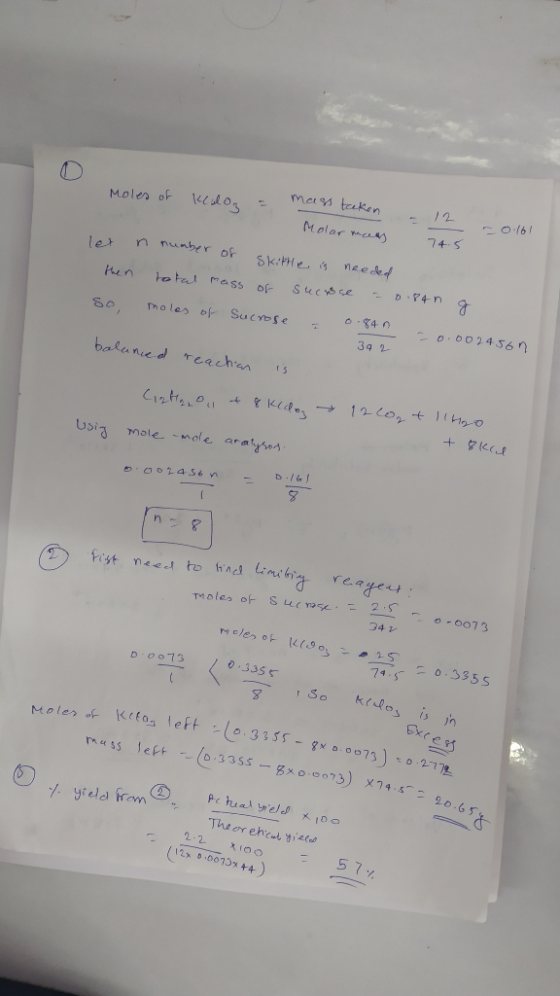 ①
Moles of KClO3 = mass taken / Molar mass = 12 / 74.5 = 0.161
let n number of skittle is needed
then total mass of sucrose = 0.84n g
So, moles of Sucrose = 0.84n / 342 = 0.002456n
balanced reaction is
C12H22O11 + 8KClO3 → 12CO2 + 11H2O + 8KCl
Using mole-mole analysis.
0.002456n / 1 = 0.161 / 8
n = 8
② first need to find limiting reagent:
moles of sucrose = 2.5 / 342 = 0.0073
moles of KClO3 = 25 / 74.5 = 0.3355
0.0073 / 1 < 0.3355 / 8, So KClO3 is in Excess
Moles of KClO3 left = (0.3355 - 8×0.0073) = 0.2771
mass left = (0.3355 - 8×0.0073) × 74.5 = 20.65g
③ % yield from ② = Actual yield / Theoretical yield × 100
= 2.2 / (12×0.0073×44) × 100 = 57%